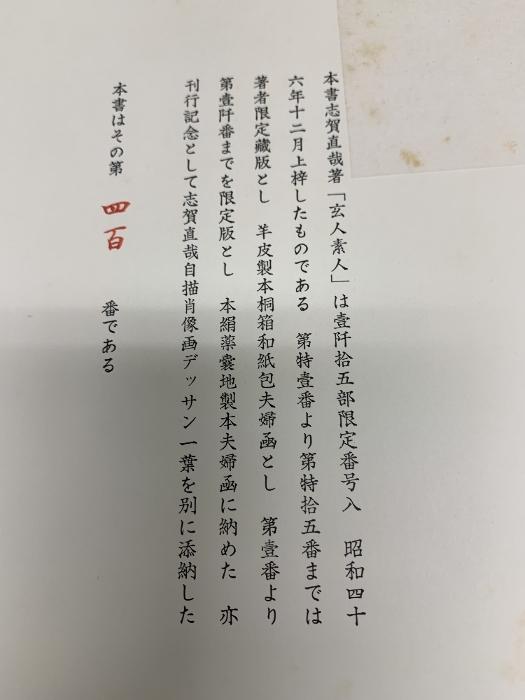 本書志賀直哉著「玄人素人」は壹阡拾五部限定番号入　昭和四十
六年十二月上梓したものである　第特壹番より第特拾五番までは
著者限定藏版とし　羊皮製本桐箱和紙包夫婦函とし　第壹番より
第壹阡番までを限定版とし　本絹薬嚢地製本夫婦函に納めた　亦
刊行記念として志賀直哉自描肖像画デッサン一葉を別に添納した
本書はその第　四百　番である